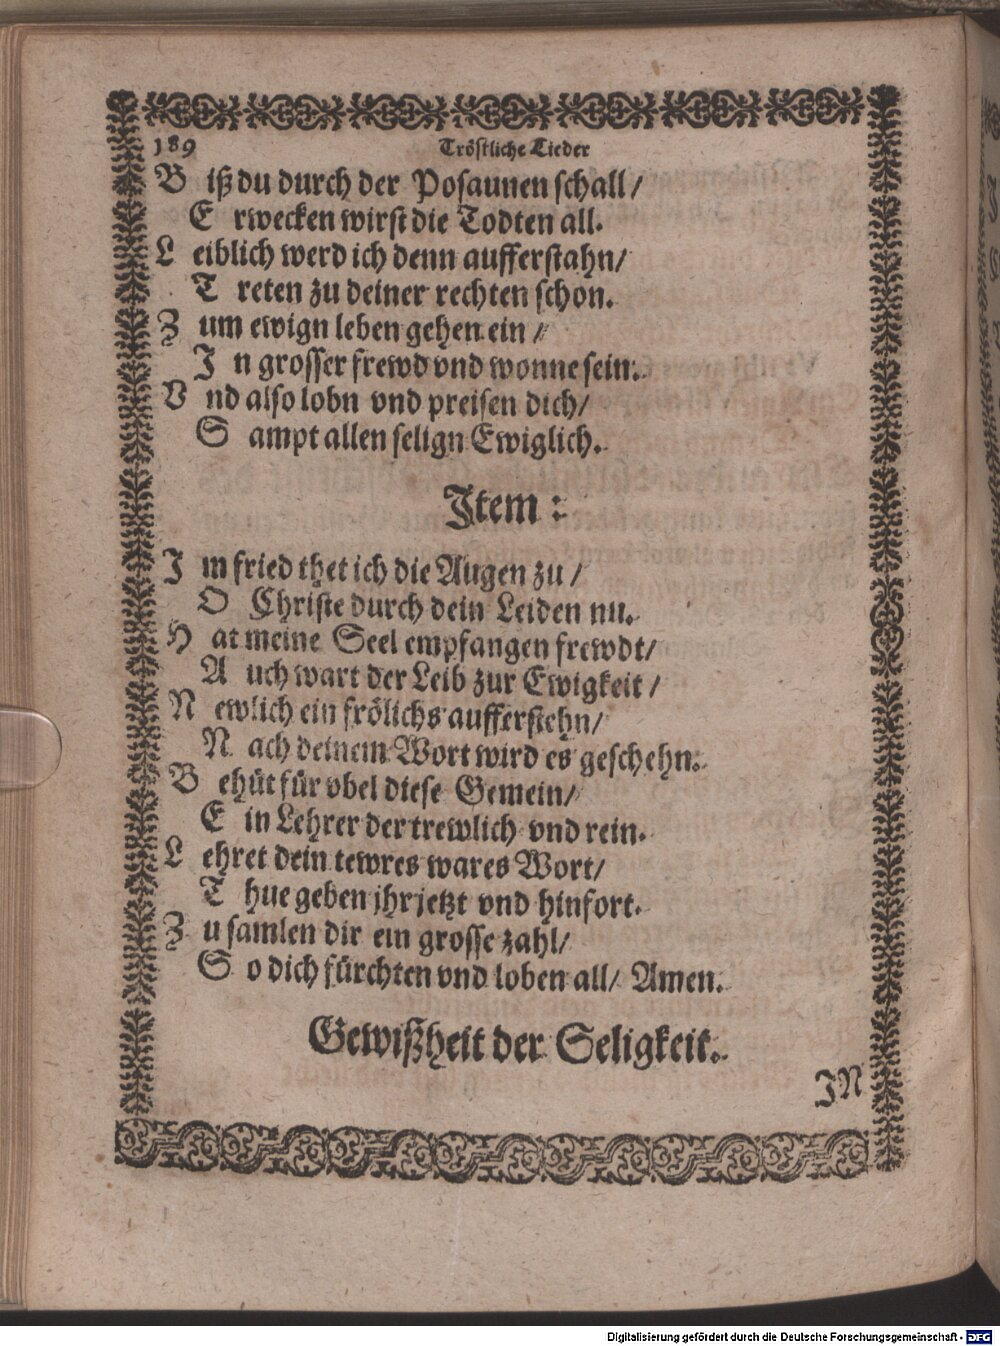 189 Tröstliche Lieder
B iß du durch der Posaunen schall /
E rwecken wirst die Todten all.
L eiblich werd ich denn aufferstahn/
T reten zu deiner rechten schon.
Z um ewign leben gehen ein /
J n grosser frewd vnd wonne sein.
V nd also lobn vnd preisen dich/
S ampt allen selign Ewiglich.
Jtem :
J m fried thet ich die Augen zu /
O Christe durch dein Leiden nu.
H at meine Seel empfangen frewdt/
A uch wart der Leib zur Ewigkeit /
N ewlich ein frölichs aufferstehn/
N ach deinem Wort wird es geschehn.
B ehüt für vbel diese Gemein/
E in Lehrer der trewlich vnd rein.
L ehret dein tewres wares Wort/
T hue geben jhr jetzt vnd hinfort.
Z u samlen dir ein grosse zahl/
S o dich fürchten vnd loben all/ Amen.
Gewißheit der Seligkeit.
JN
Digitalisierung gefördert durch die Deutsche Forschungsgemeinschaft - DFG